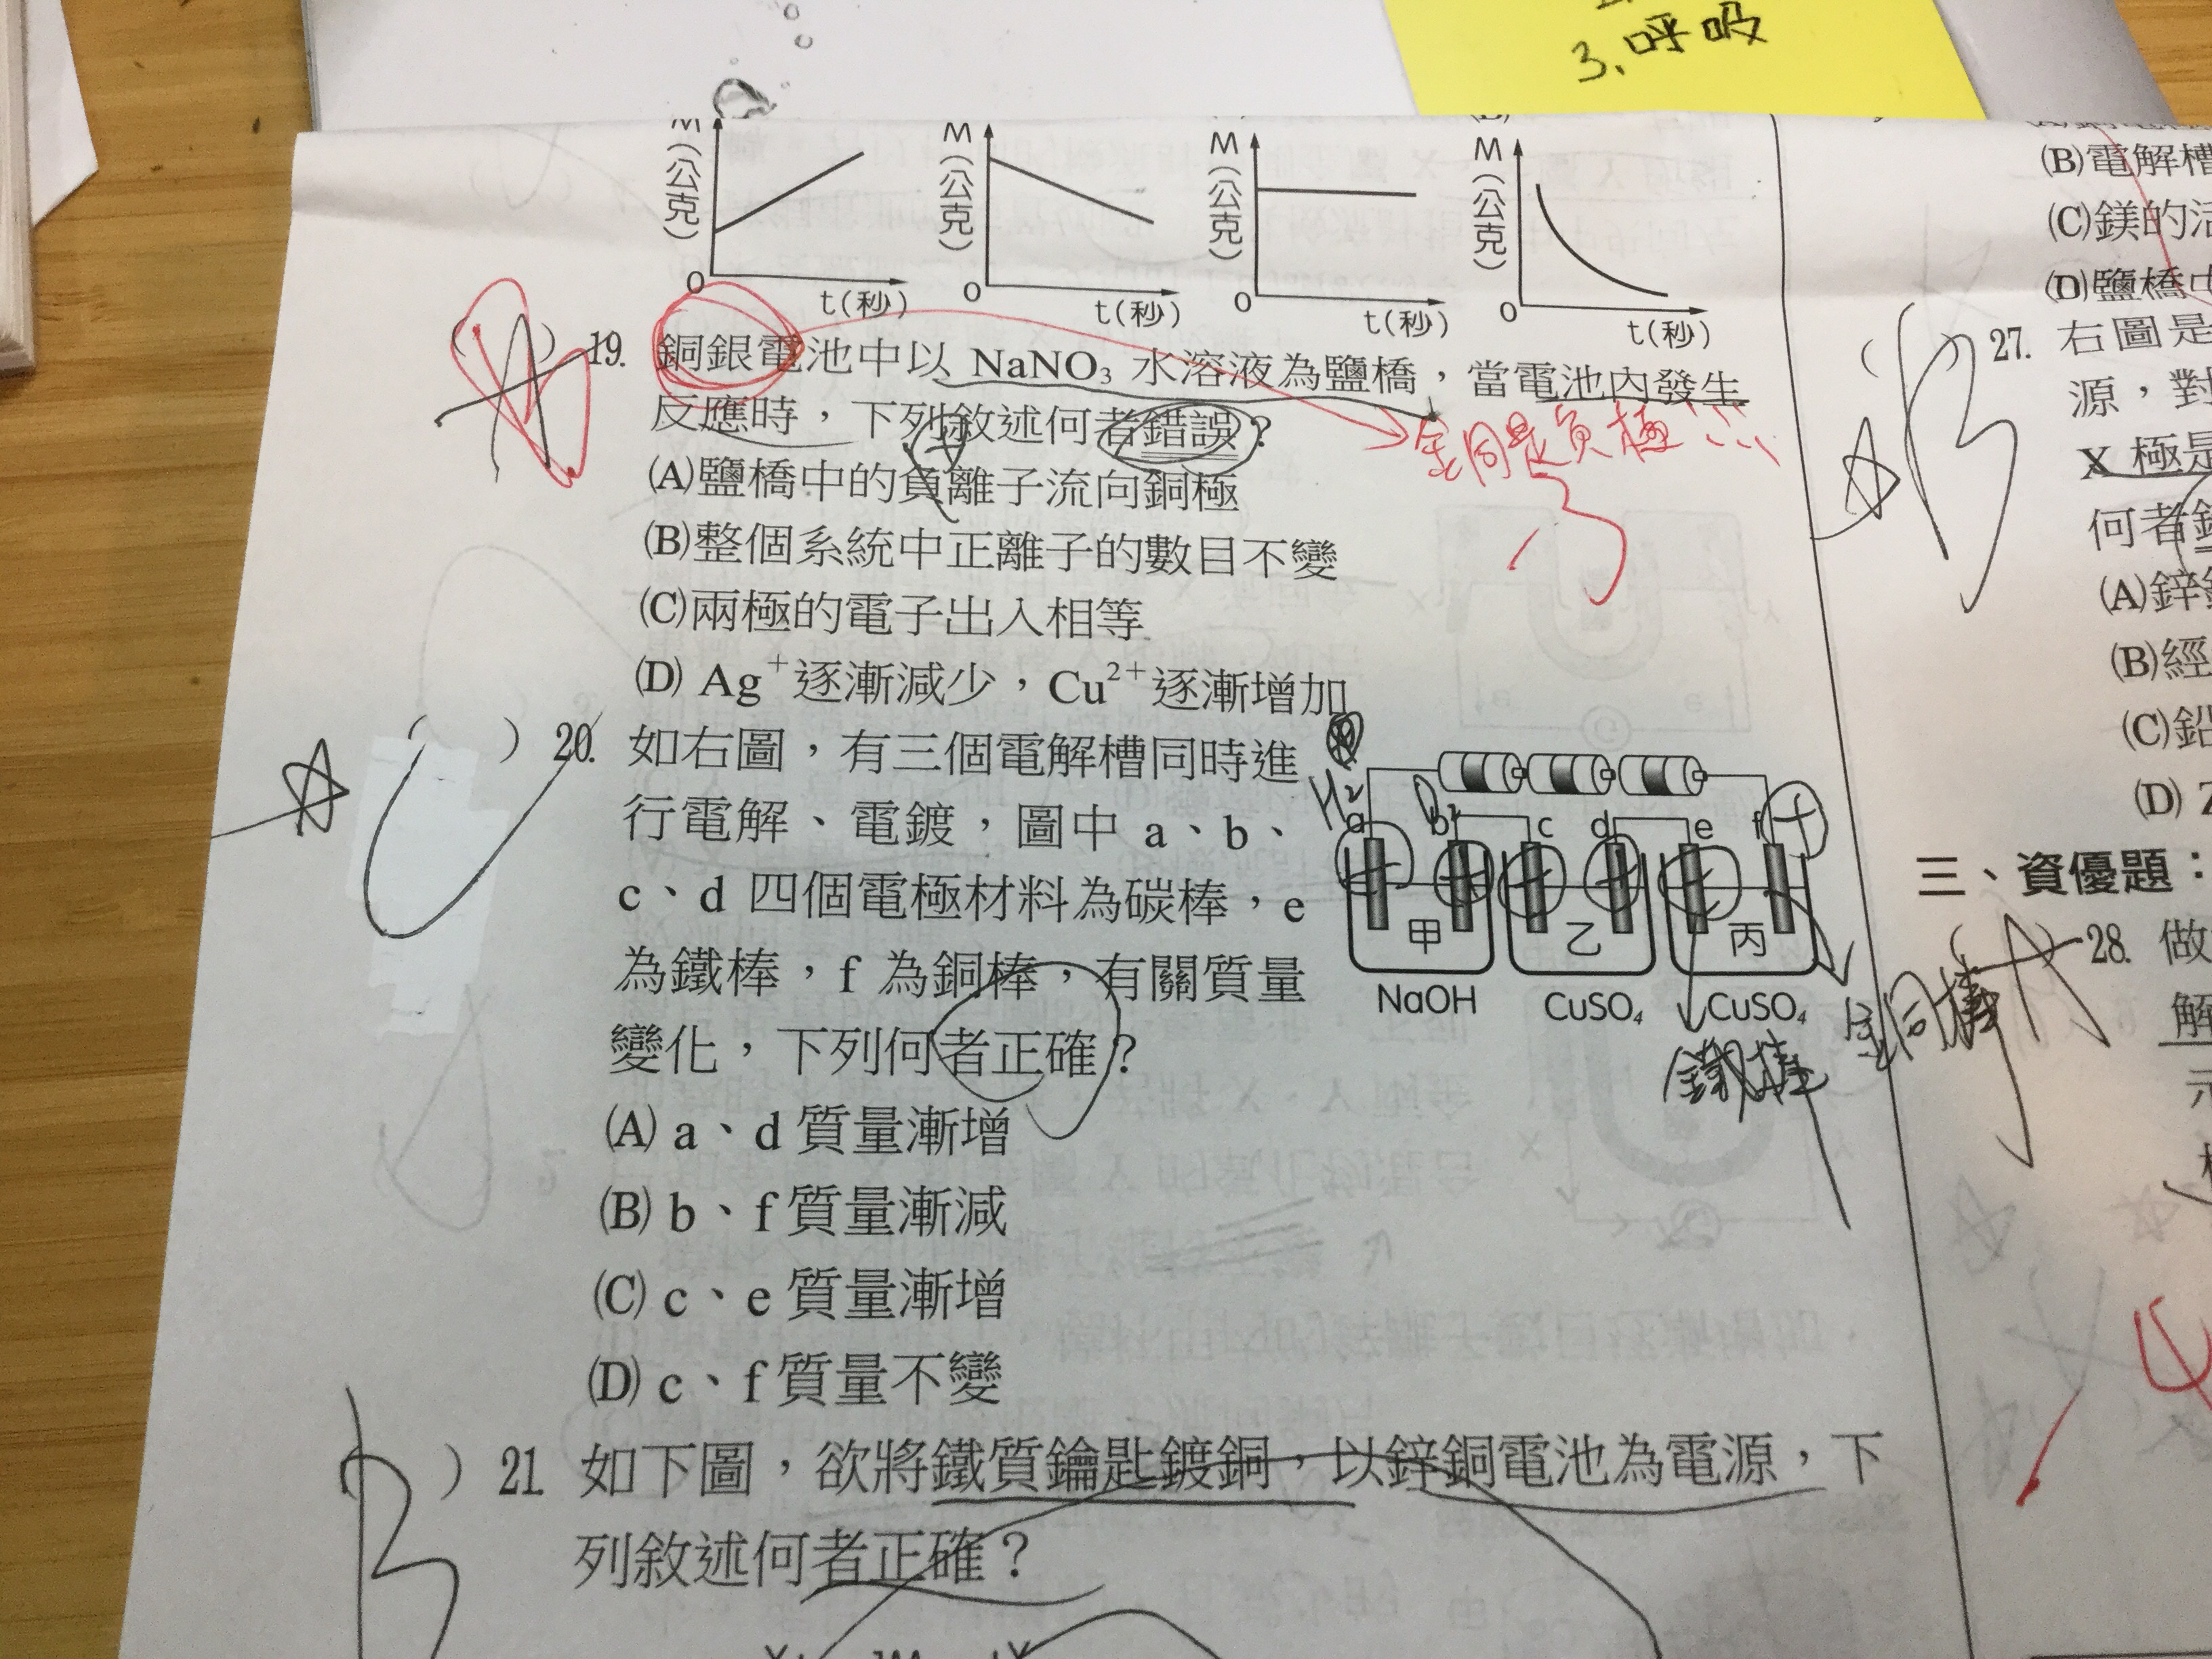 3.呼吸
M(公克)
M(公克)
M(公克)
M(公克)
0
0
0
0
t(秒)
t(秒)
t(秒)
t(秒)
( A ) 19. 銅銀電池中以 NaNO₃ 水溶液為鹽橋,當電池內發生
反應時,下列敘述何者錯誤?
銅是負極
(A)鹽橋中的負離子流向銅極
(B)整個系統中正離子的數目不變
(C)兩極的電子出入相等
(D) Ag⁺逐漸減少,Cu²⁺逐漸增加
( ) 20. 如右圖,有三個電解槽同時進
行電解、電鍍,圖中 a、b、
c、d 四個電極材料為碳棒,e
為鐵棒,f 為銅棒,有關質量
變化,下列何者正確?
H₂
a b c d e f
+
甲 乙 丙
NaOH CuSO₄ CuSO₄
鐵棒
銅棒
(A) a、d 質量漸增
(B) b、f 質量漸減
(C) c、e 質量漸增
(D) c、f 質量不變
( B ) 21. 如下圖,欲將鐵質鑰匙鍍銅,以鋅銅電池為電源,下
列敘述何者正確?
(B)電解槽
(C)鎂的活
(D)鹽橋中
( B ) 27. 右圖是
源,對
X 極是
何者錯
(A)鋅
(B)經
(C)鉛
(D) Z
三、資優題:
( A ) 28. 做
解